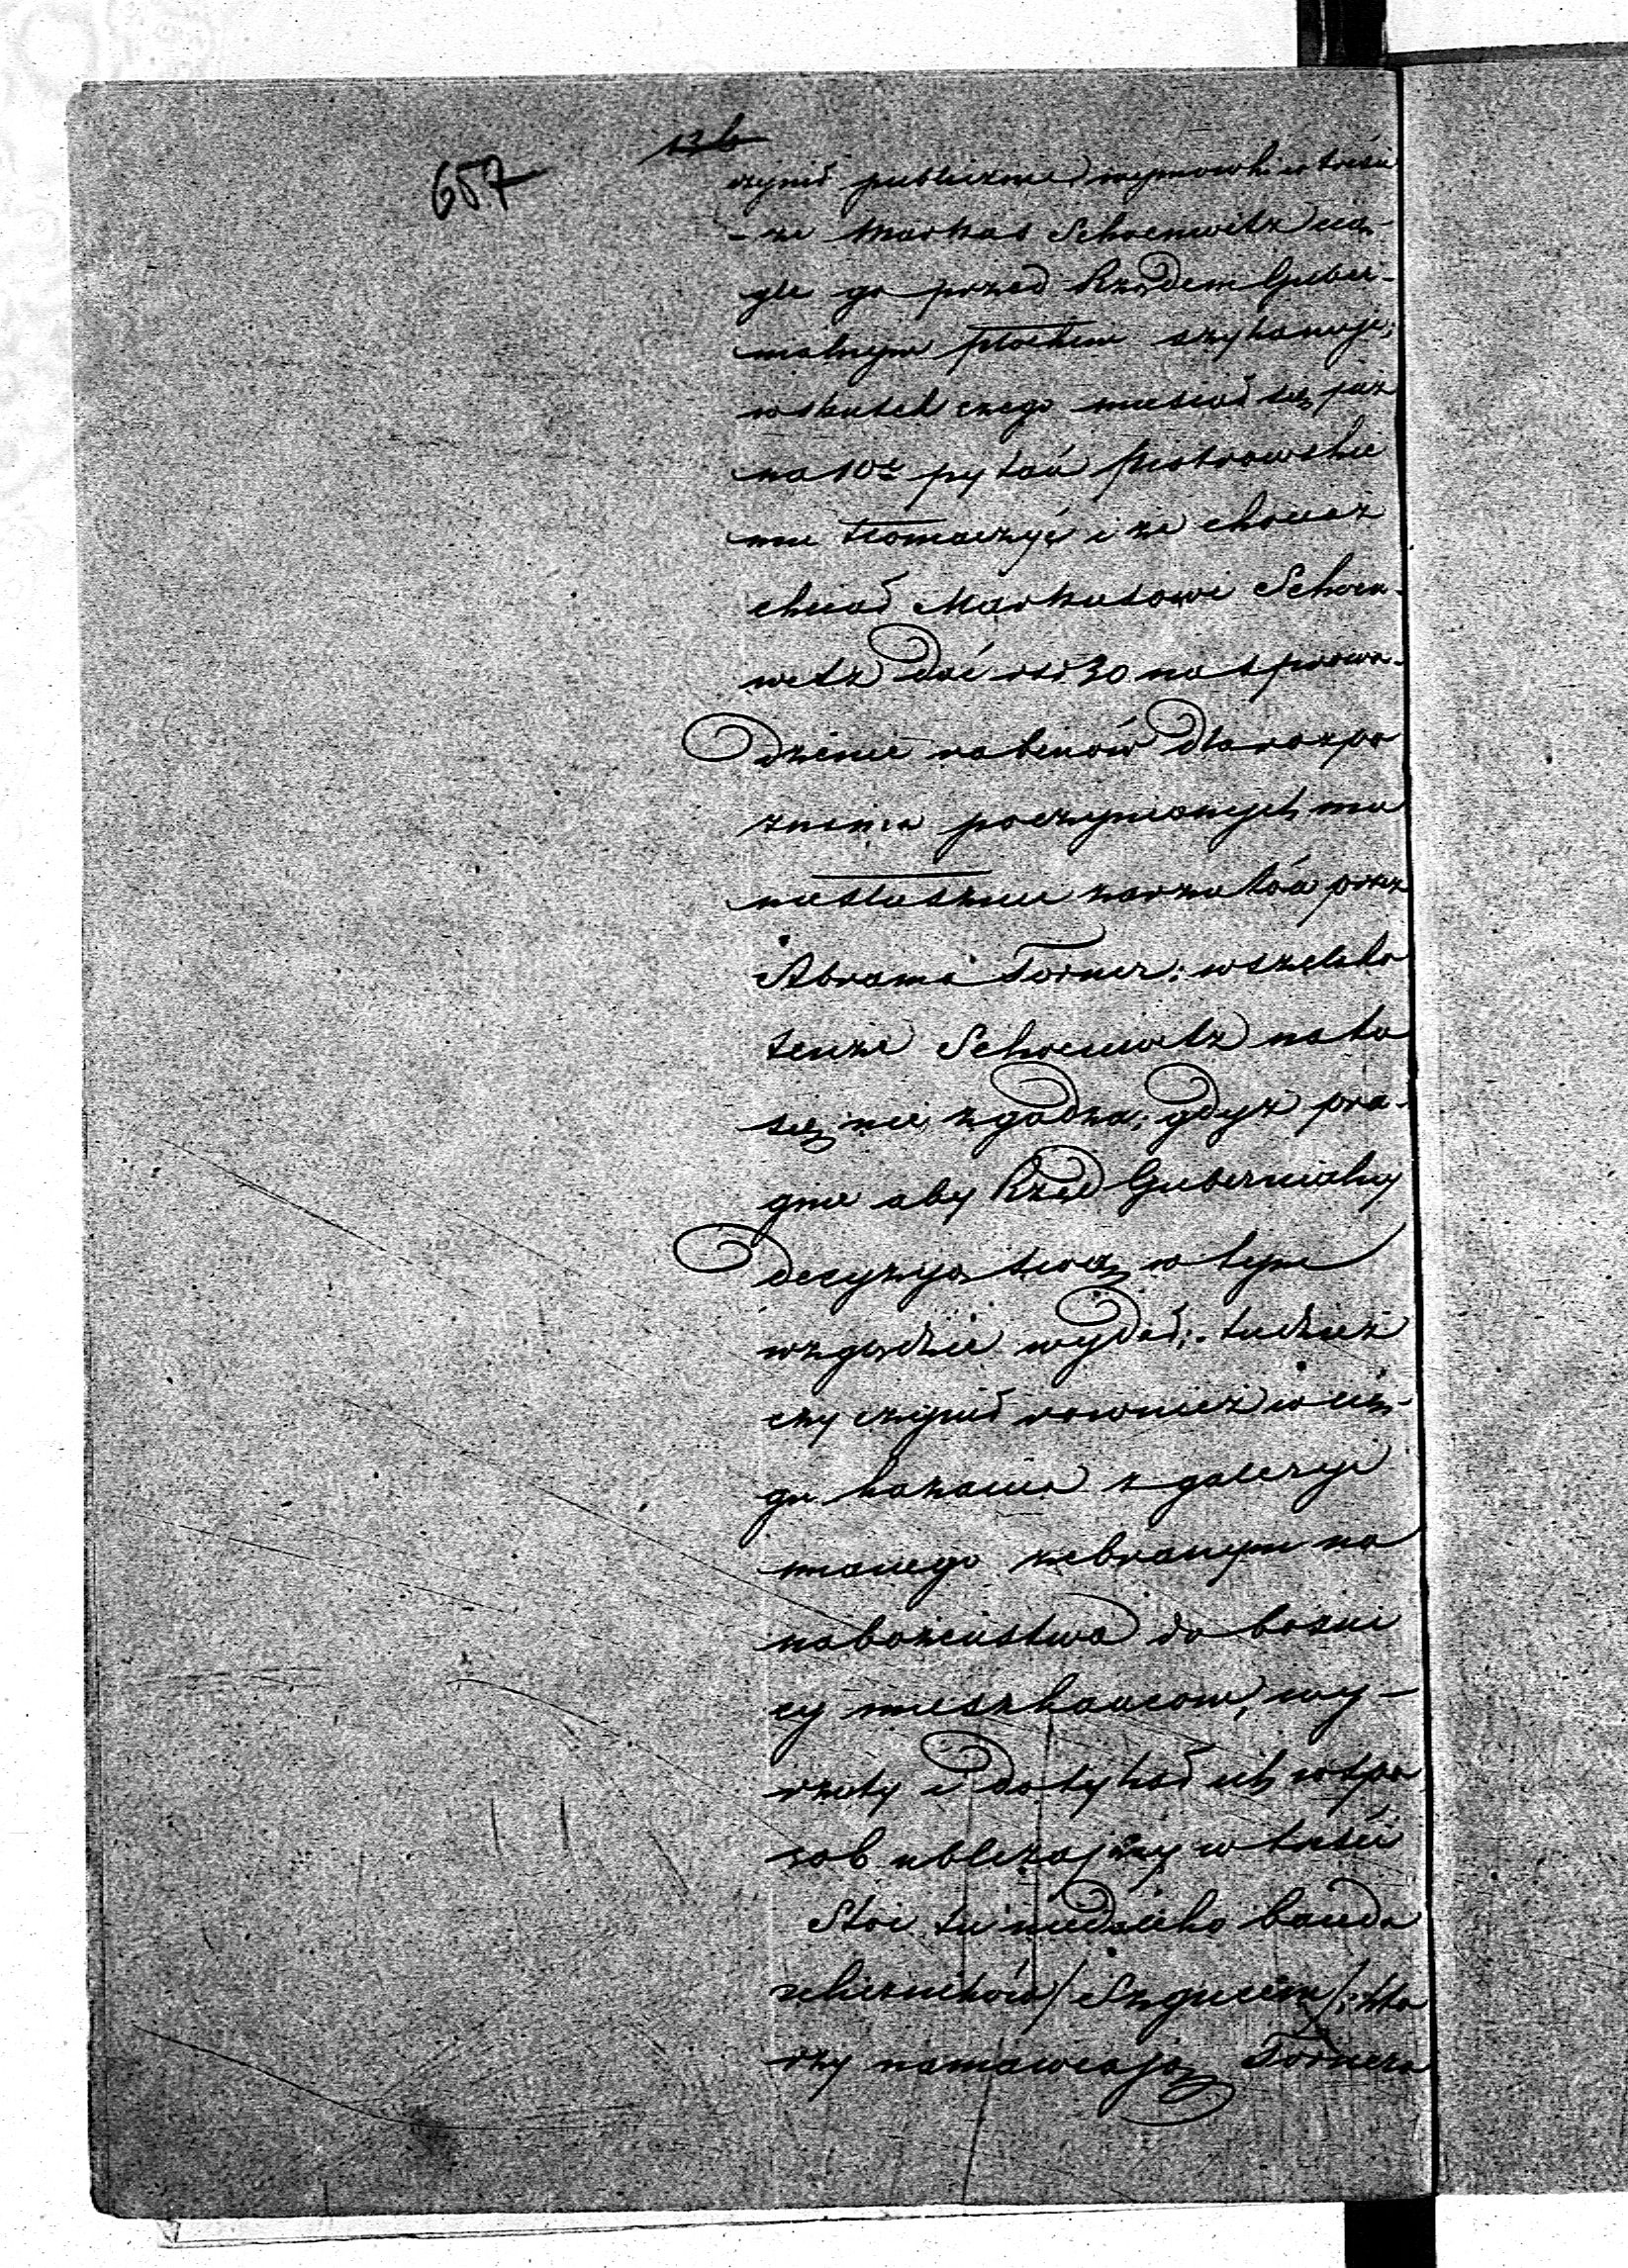 657
czynił publiczne wymówki w treści
- że Markus Schoenwitz cią-
gle go przed Rządem Guber-
nialnym Płockim szykanuje;
wskutek czego musiał się już
na 10ć pytań Piotrowskie
mu tłomaczyć i że chociaż
chciał Markusowi Schoen-
witz dać rsr 30 na sprowa-
dzenie rabinów dla rozpo
znania poczynionych mu
niesłusznie zarzutów przez
Abrama Torner; wszelako
tenże Schoenwitz na to
się nie zgadza; gdyż pra-
gnie aby Rząd Gubernialny
decyzyą swą w tym
względzie wydał; tudzież
czy czynił również w cią-
gu kazania z galeryi
mianego zebranym na
nabożeństwa do bożni
cy mieszkańcom, wy-
rzuty i dotykał ich w spo
sób ubliżający w treści
Stoi tu niedaleko banda
rzy namawiają Tornera